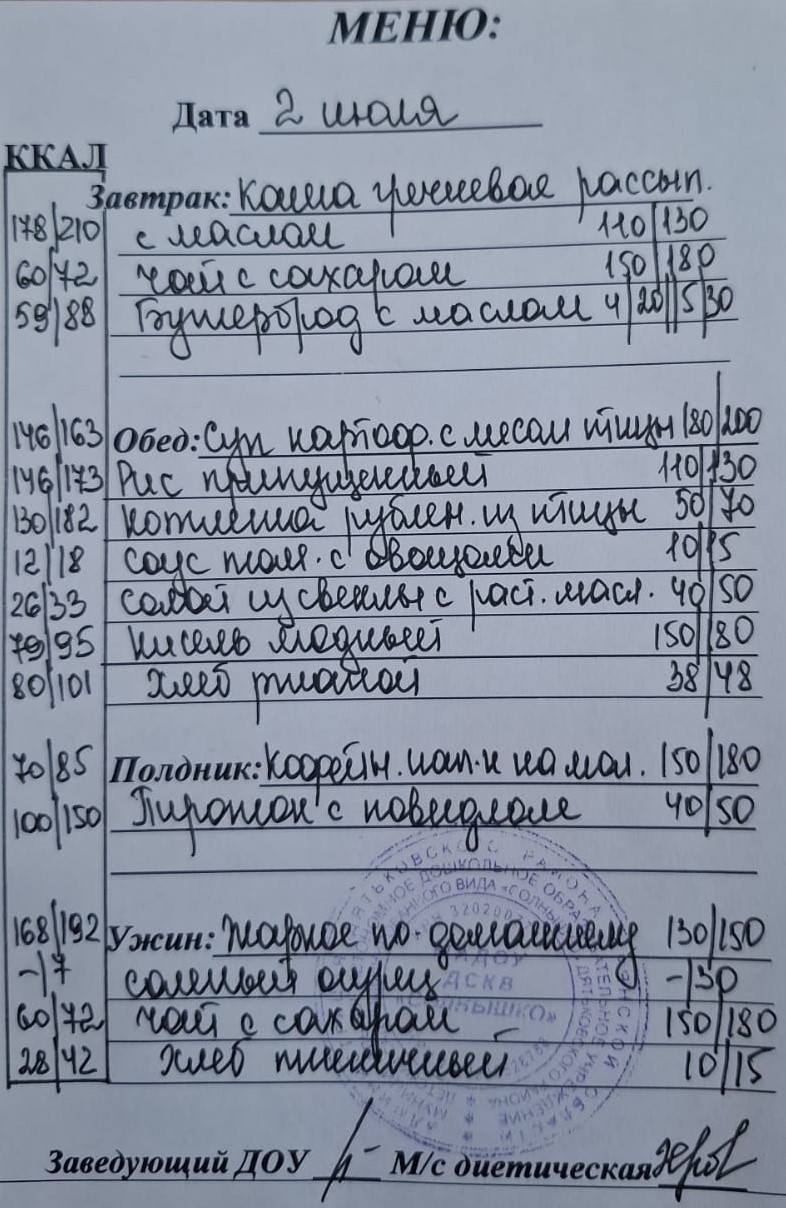 МЕНЮ:
Дата 2 июля
ККАЛ
Завтрак: Каша гречневая рассып.
178/210 с маслом 110/130
60/72 чай с сахаром 150/180
59/88 Бутерброд с маслом 4/20//5/30
146/163 Обед: Суп картоф. с мясом птицы 180/200
146/173 Рис припущенный 110/130
130/182 котлета рублен. из птицы 50/70
12/18 соус том. с овощами 10/15
26/33 салат из свеклы с раст. масл. 40/50
79/95 кисель 150/180
80/101 хлеб ржаной 38/48
70/85 Полдник: Кофейн. нап-к на мол. 150/180
100/150 Пирожок с повидлом 40/50
168/192 Ужин: Жаркое по-домашнему 130/150
-/7 соленый огурец -/30
60/72 чай с сахаром 150/180
28/42 хлеб пшеничный 10/15
Заведующий ДОУ М/с диетическая